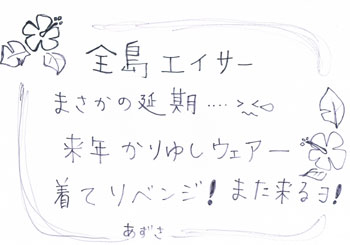 全島エイサー
まさかの延期‥‥>_<
来年かりゆしウェアー
着てリベンジ!また来るヨ!
あずさ